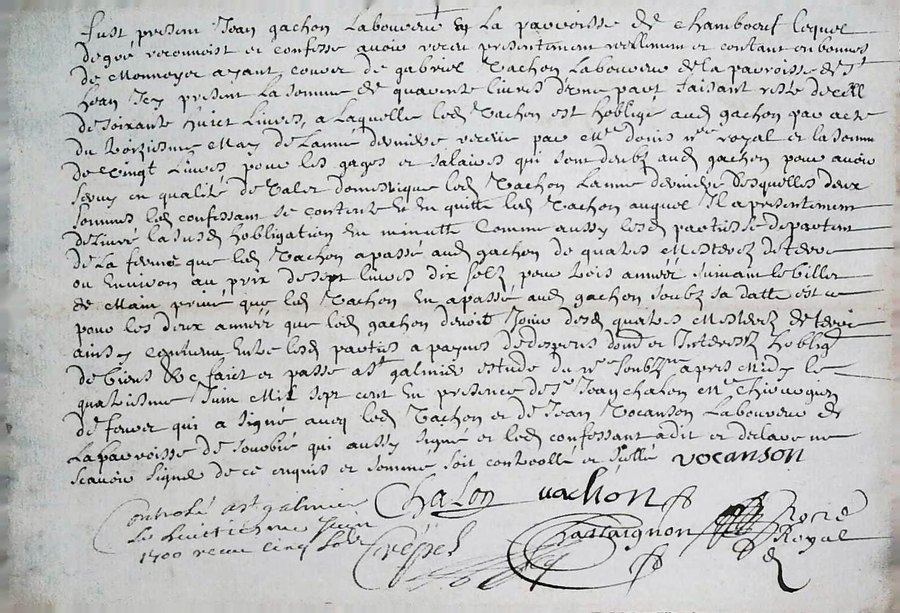 fust present Jean gachon Laboureur En La parroisse de chambœuf lequel
de gré reconnoist et confesse avoir receu presentement reellement et contant en bonnes
de Monnoyes ayant cour de gabriel Vachon Laboureur de la parroisse de st
Jean Icy present La somme de quarente livres d'une part faisant reste de celle
de soixante huict Livres, a Laquelle led Vachon est hobligé aud gachon par acte
du May de Lanné derniere receüe par Me denis nre royal et la somme
de vingt Livres pour les gages et salaires qui sont deubz aud gachon pour avoir
servy en qualité de Valet domestique led Vachon Lanné derniere desquelles deux
sommes led confessant se contente et en quitte led Vachon auquel Il a presentement
délivré la susd hobligation en minutte Comme aussy lesd parties se départent
de La ferme que led Vachon a passé aud gachon de quatre Mesterez de terre
ou Environ au prix de sept livres dix solz pour trois anneés suivant le billet
de Main privé que led Vachon En a passé aud gachon soubz sa datte est ce
pour les deux anneés que led gachon devoit Jouir desd quatre Mesterez de terre
ainsy Convenu Entre lesd parties a paynes de despens domd et Interestz hobligd
de biens &c faict et passé a st galmier estude du nre soubzne apres Midy le
quatriesme Juin Mil sept cent En presence de sr Jean chalon Me Chirurgien
de qui a signé avec led Vachon et de Jean Vocanson Laboureur de
La parroisse de qui a aussy signé et led confessant a dit et declaré ne
scavoir signer de ce enquis et sommé soit controllé et scellé vocanson
Chalon vachon
Controlé a st galmier
Le huitiè me Juin
1700 receu cinq solz
Crépet
Chastaignon Nore
Royal